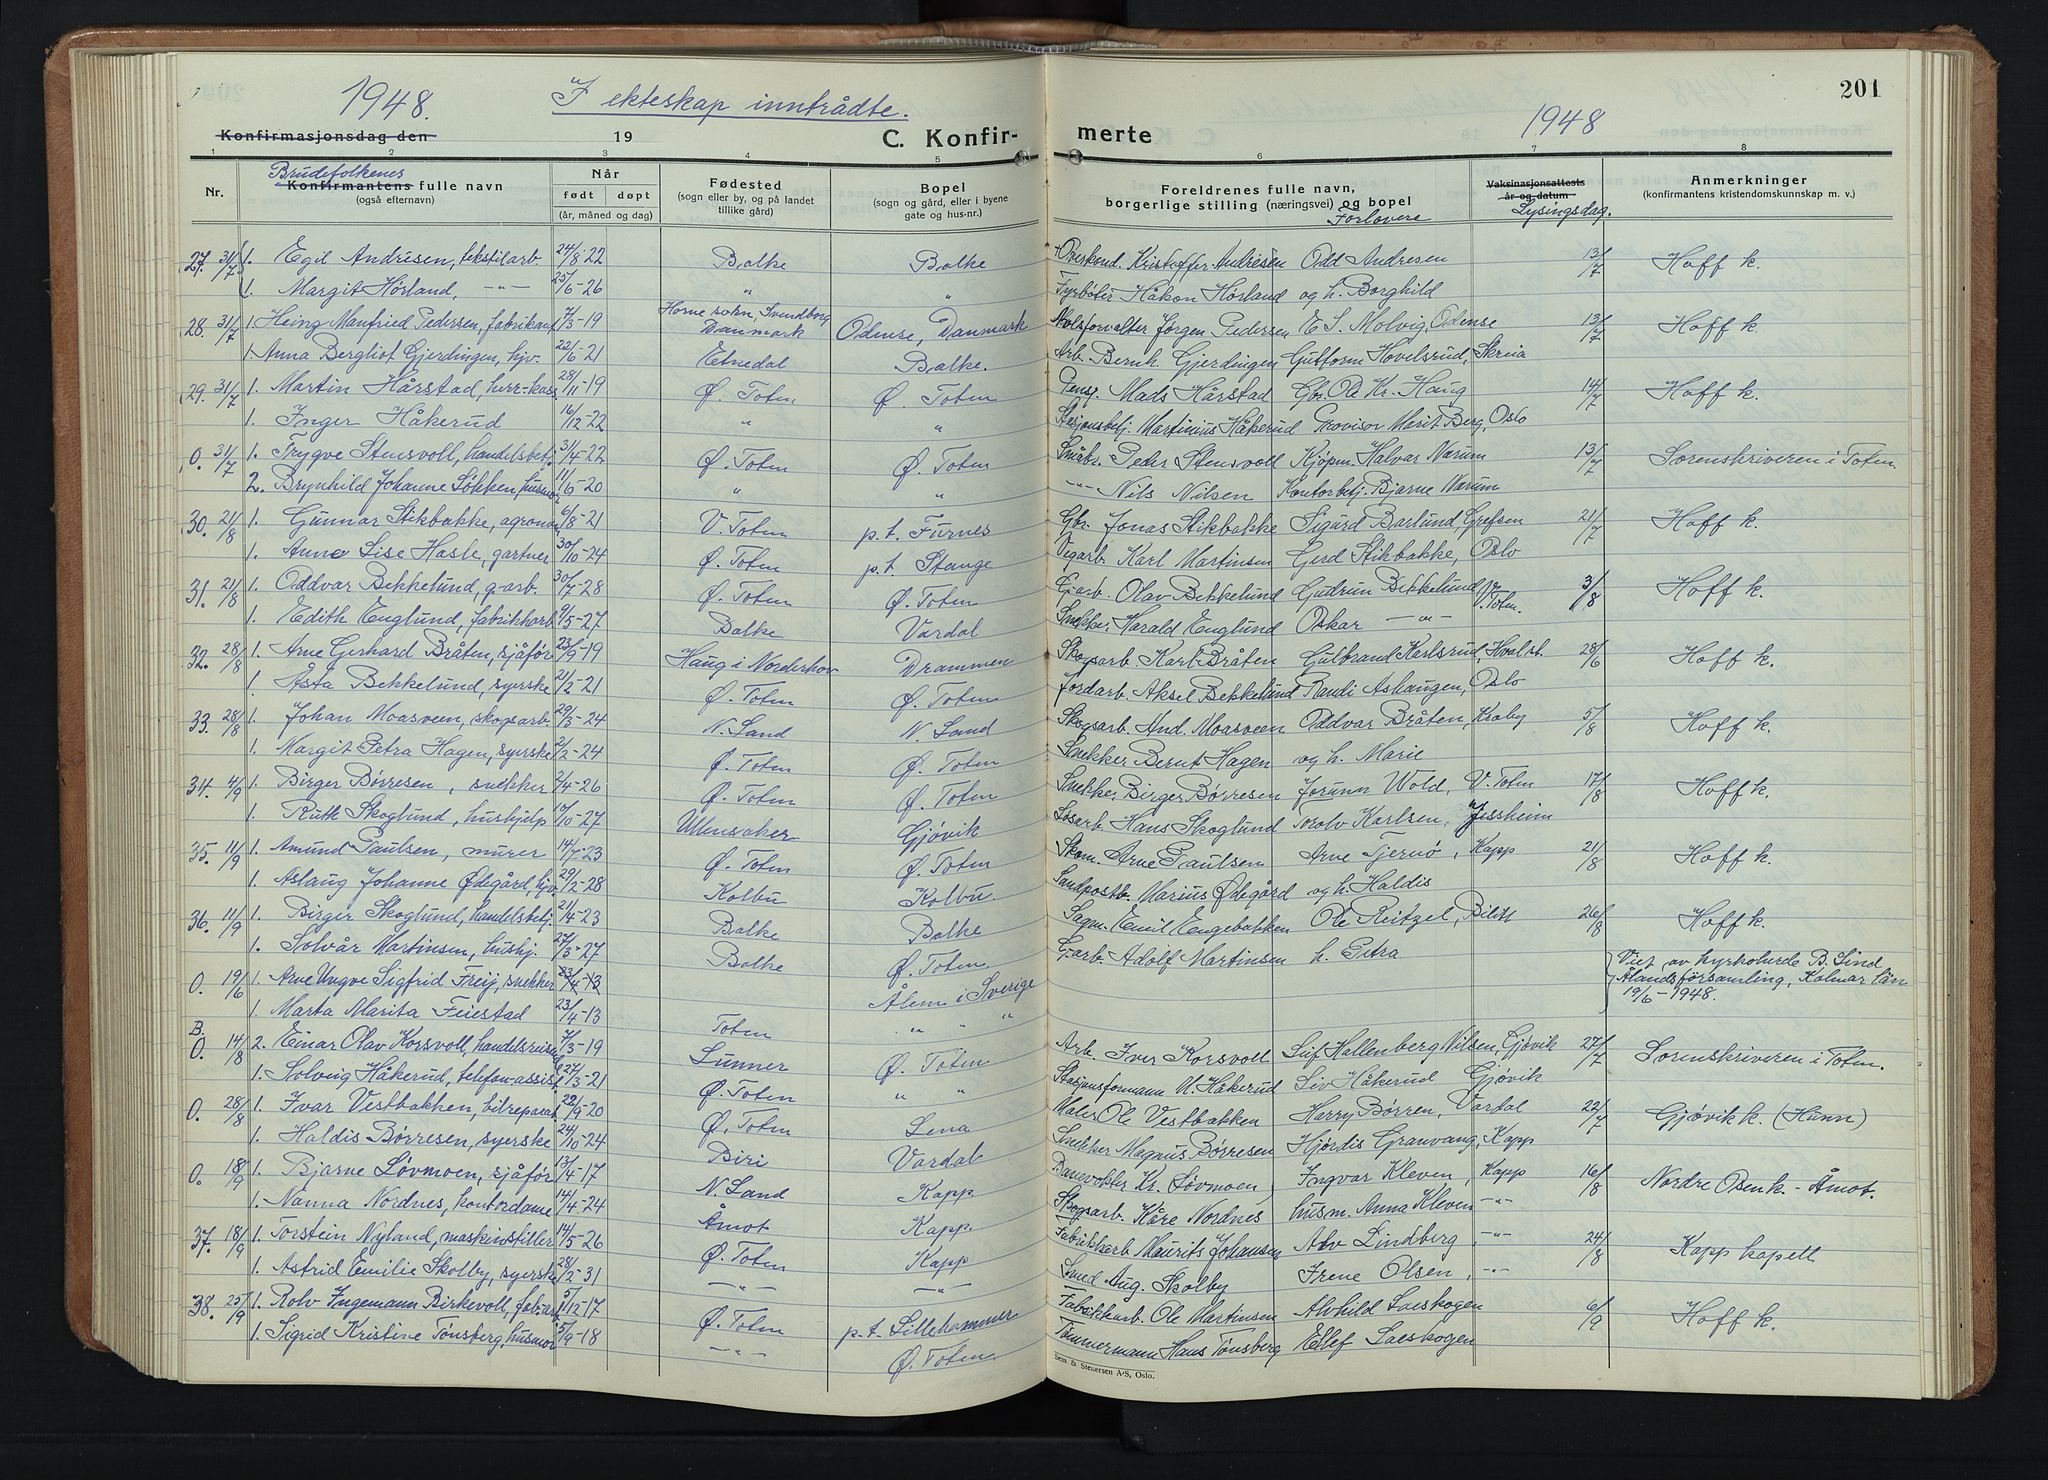 1948. I ekteskap inntrådte. 1948 201
Konfirmasjonsdag den 19 C. Konfir- merte
1 2 3 4 5 6 7 8
Nr. Brudefolkenes Konfirmantens fulle navn (også efternavn) Når født døpt (år, måned og dag) Fødested (sogn eller by, og på landet tillike gård) Bopel (sogn og gård, eller i byene gate og hus-nr.) Foreldrenes fulle navn, borgerlige stilling (næringsvei) og bopel Forlovere Vaksinasjonsattests år og datum Lysingsdag. Anmerkninger (konfirmantens kristendomskunnskap m. v.)
27. 31/7 1. Egil Andresen, tekstilarb. 24/8-22 Balke Balke Kristoffer Andresen Odd Andresen 13/7 Hoff k.
1. Margit Hørland, -"- 25/6-26 " " Fyrbøter Håkon Hørland og h. Borghild
28. 31/7 1. Heing Manfried Pedersen, fabrikant 7/3-19 Horne sokn, Svendborg Danmark Odense, Danmark Jørgen Pedersen E. S. Molvig, Odense 13/7 Hoff k.
1. Anna Bergliot Gjerdingen, hjv. 22/6-21 Etnedal Balke. Arb. Bernh. Gjerdingen Guttorm Hovelsrud, Skreia
29. 31/7 1. Martin Hårstad, herr-kass. 28/11-19 Ø. Toten Ø. Toten Pensj. Mads Hårstad Gbr. Ole Kr. Haug 14/7 Hoff k.
1. Inger Håkerud 16/12-22 " " Stasjonsbetj. Martinius Håkerud Provisor Marit Berg, Oslo
0. 31/7 1. Trygve Stensvoll, handelsbetj. 3/4-22 Ø. Toten Ø. Toten Småbr. Peder Stensvoll Kjøpm. Halvar Nærum 13/7 Sorenskriveren i Toten
2. Brynhild Johanne Løkken, husmor 11/6-20 " " -"- Nils Nilsen Kontorbetj. Bjarne Wærum
30. 21/8 1. Gunnar Stikbakke, agronom 6/8-21 V. Toten p.t. Furnes Gbr. Jonas Stikbakke Sigurd Barlund, Grefsen 21/7 Hoff k.
1. Anne Lise Hasle, gartner 30/10-24 Ø. Toten p.t. Stange Vegarb. Karl Martinsen Gerd Stikbakke, Oslo
31. 21/8 1. Oddvar Bekkelund, g.arb. 30/7-28 Ø. Toten Ø. Toten G.arb. Olav Bekkelund Gudrun Bekkelund, V. Toten. 3/8 Hoff k.
1. Edith Englund, fabrikkarb. 9/5-27 Balke Vardal Snekker Harald Englund Oskar -"-
32. 28/8 1. Arne Gerhard Bråten, sjåfør 23/9-19 Haug i Norderhov Drammen Skogsarb. Karl Bråten Gulbrand Karlsrud, Hvalst. 28/6 Hoff k.
1. Åsta Bekkelund, syerske 21/2-21 Ø. Toten Ø. Toten Jordarb. Aksel Bekkelund Randi Aslaugen, Oslo
33. 28/8 1. Johan Moasveen, skogsarb. 29/3-24 N. Land N. Land Skogsarb. And. Moasveen Oddvar Bråten, Kraby 5/8 Hoff k.
1. Margit Petra Hagen, syerske 2/2-24 Ø. Toten Ø. Toten Snekker Bernt Hagen og h. Marie
34. 4/9 1. Birger Børresen, snekker 2/4-26 Ø. Toten Ø. Toten Snekker Birger Børresen Jorunn Wold, V. Toten 17/8 Hoff k.
1. Ruth Skoglund, hushjelp 10/10-27 Ullensaker Gjøvik Løsarb. Hans Skoglund Torolv Karlsen, Jessheim
35. 11/9 1. Amund Paulsen, murer 14/7-23 Ø. Toten Ø. Toten Skom. Arne Paulsen Arne Tjernø, Kapp 21/8 Hoff k.
1. Aslaug Johanne Ødegård, hjv. 29/2-28 Kolbu Kolbu. Landpostb. Marius Ødegård og h. Haldis
36. 11/9 1. Birger Skoglund, handelsbetj. 21/4-23 Balke Balke Sagm. Emil Engebakken Ole Reitzel, Bilitt 26/8 Hoff k.
1. Solvår Martinsen, hushj. 27/3-27 Balke Ø. Toten G.arb. Adolf Martinsen h. Petra
0. 19/6 1. Arne Yngve Sigfrid Freij, snekker 23/4-13 Ålem i Sverige Viet av kyrkoherde B. Lind Ålandsförsamling, Kalmar län 19/6-1948.
1. Marta Marita Feiestad 23/4-13 Toten " " "
B. 0. 14/8 2. Einar Olav Korsvoll, handelsreisende 7/3-19 Lunner Ø. Toten Arb. Iver Korsvoll Leif Hallenberg Nilsen, Gjøvik 27/7 Sorenskriveren i Toten.
1. Solveig Håkerud, telefon-assist. 27/3-21 Ø. Toten " " Stasjonsformann M. Håkerud Siv Håkerud Gjøvik
0. 28/8 1. Ivar Vestbakken, bilreparat. 22/9-20 Ø. Toten Lena Maler Ole Vestbakken Harry Børren, Vardal 22/7 Gjøvik k. (Hunn)
1. Haldis Børresen, syerske 24/10-24 Biri Vardal Snekker Magnus Børresen Hjørdis Granvang, Kapp
0. 18/9 1. Bjarne Løvmoen, sjåfør 13/4-17 N. Land Kapp Banevokter Kr. Løvmoen, Ingvar Kleven, Kapp 16/8 Nordre Osen k. - Åmot.
1. Nanna Nordnes, kontordame 14/4-24 Åmot Kapp Skogsarb. Kåre Nordnes husm. Anna Kleven -"-
37. 18/9 1. Torstein Nyland, maskinstiller 14/5-26 Ø. Toten Kapp Fabrikkarb. Maurits Johansen Alv Lindberg, -"- 24/8 Kapp kapell
1. Astrid Emilie Skolby, syerske 28/2-31 -"- -"- Smed Aug. Skolby Irene Olsen, -"-
38. 25/9 1. Rolv Ingemann Birkevoll, fab.arb. 5/12-17 Ø. Toten p.t. Lillehammer Fabrikkarb. Ole Martinsen Alvhild Laeskogen 6/9 Hoff k.
1. Sigrid Kristine Tønsberg, husmor 5/9-18 -"- Ø. Toten Tømmermann Hans Tønsberg Ellef Laeskogen
Sem & Stenersen A/S, Oslo.